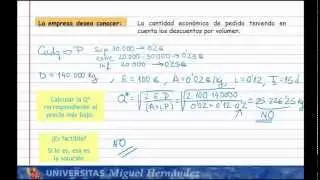 La empresa desea conocer:
La cantidad económica de pedido teniendo en cuenta los descuentos por volumen.
Cadq → P
Sup 30.000 → 0'2€
entre
20.000 → 0'25€
D = 140.000 kg, E = 100€, A = 0'02€/kg, I = 0'12,
Calcular la Q* correspondiente al precio más bajo:
Q* = √ 2·E·D / (A+I·P) = √ 2·100·140000 / 0'02+0'12·0'2 = 25.226'25 kg
NO
¿Es factible? Si lo es, esa es la solución
NO
UNIVERSITAS Miguel Hernández